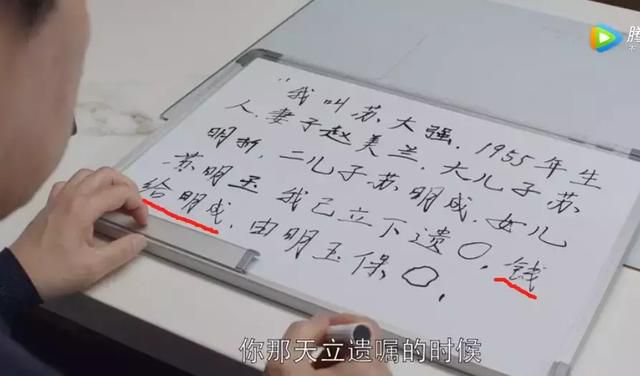 腾
"我叫苏大强、1955年生
人、妻子赵美兰、大儿子苏
明折、二儿子苏明成、女儿
苏明玉 我已立下遗〇、钱
给明成、由明玉保〇、
你那天立遗嘱的时候